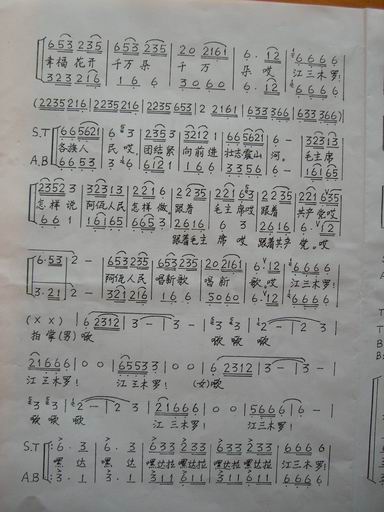 6 5 3 2 3 5 | 6 5 3 2 3 5 | 2 0 2 1 6 1 | 6 . 1 2 | 6 6 6 6
幸福 花开 千万 朵 千 万 朵 哎 江三木罗!
3 2 3 2 1 6 | 1 6 6 | 3 0 6 0 | 6 . 1 2 | 6 6 6 6
(2235216 | 2235216 | 2235653 | 2 2161 | 633366 | 633366)
S.T 665621 | 6 3 | 235 3 | 3212 1 | 665621 | 6 - | 32313
各族人 民 哎 团结紧 向前进 壮志震山 河。 毛主席
A.B 6653 | 3 6 | 612 1 | 1 6 6 | 3356 | 6 - | 16165
2352 3 | 32313 | 221 6 | 2 235 | 221 63 | 2 235 | 221 635
怎样说 阿佤人民 怎样做 跟着 毛主席哎 跟着 共产党哎
66 1 | 16165 | 665 3 | 2616 | 6 3 | 2616 | 6 . 12
跟着毛主 席 哎 跟着共产 党。哎
6·53 | 2 - | 653235 | 653235 | 202161 | 6 . 12 | 6666
阿佤人民 唱新歌 唱 新 歌。哎 江三木罗!
3·21 | 2 - | 323216 | 1 6 6 | 5060 | 6 . 12 | 6666
(X X) | 6 2312 | 3 - | 3 - | 3 3 | 2 - | 2 3
拍掌(男) 嗷 嗷 嗷 嗷
21666 | 0 0 | 66553 | 0 0 | 6 2312 | 3 - | 3 -
江三木罗! 江三木罗! (女)嗷
3 3 | 2 - | 2 3 | 21666 | 0 0 | 5666 | 6 - |
嗷 嗷 嗷 江三木罗! 江三木罗!
S.T 6 . 3 | 6 . 3 | 633233 | 633233 | 6666
嘿 达 嘿 达 嘿达拉嘿达拉 嘿达拉嘿达拉 江三木罗!
A.B 3 . 1 | 3 . 1 | 311611 | 311611 | 6666